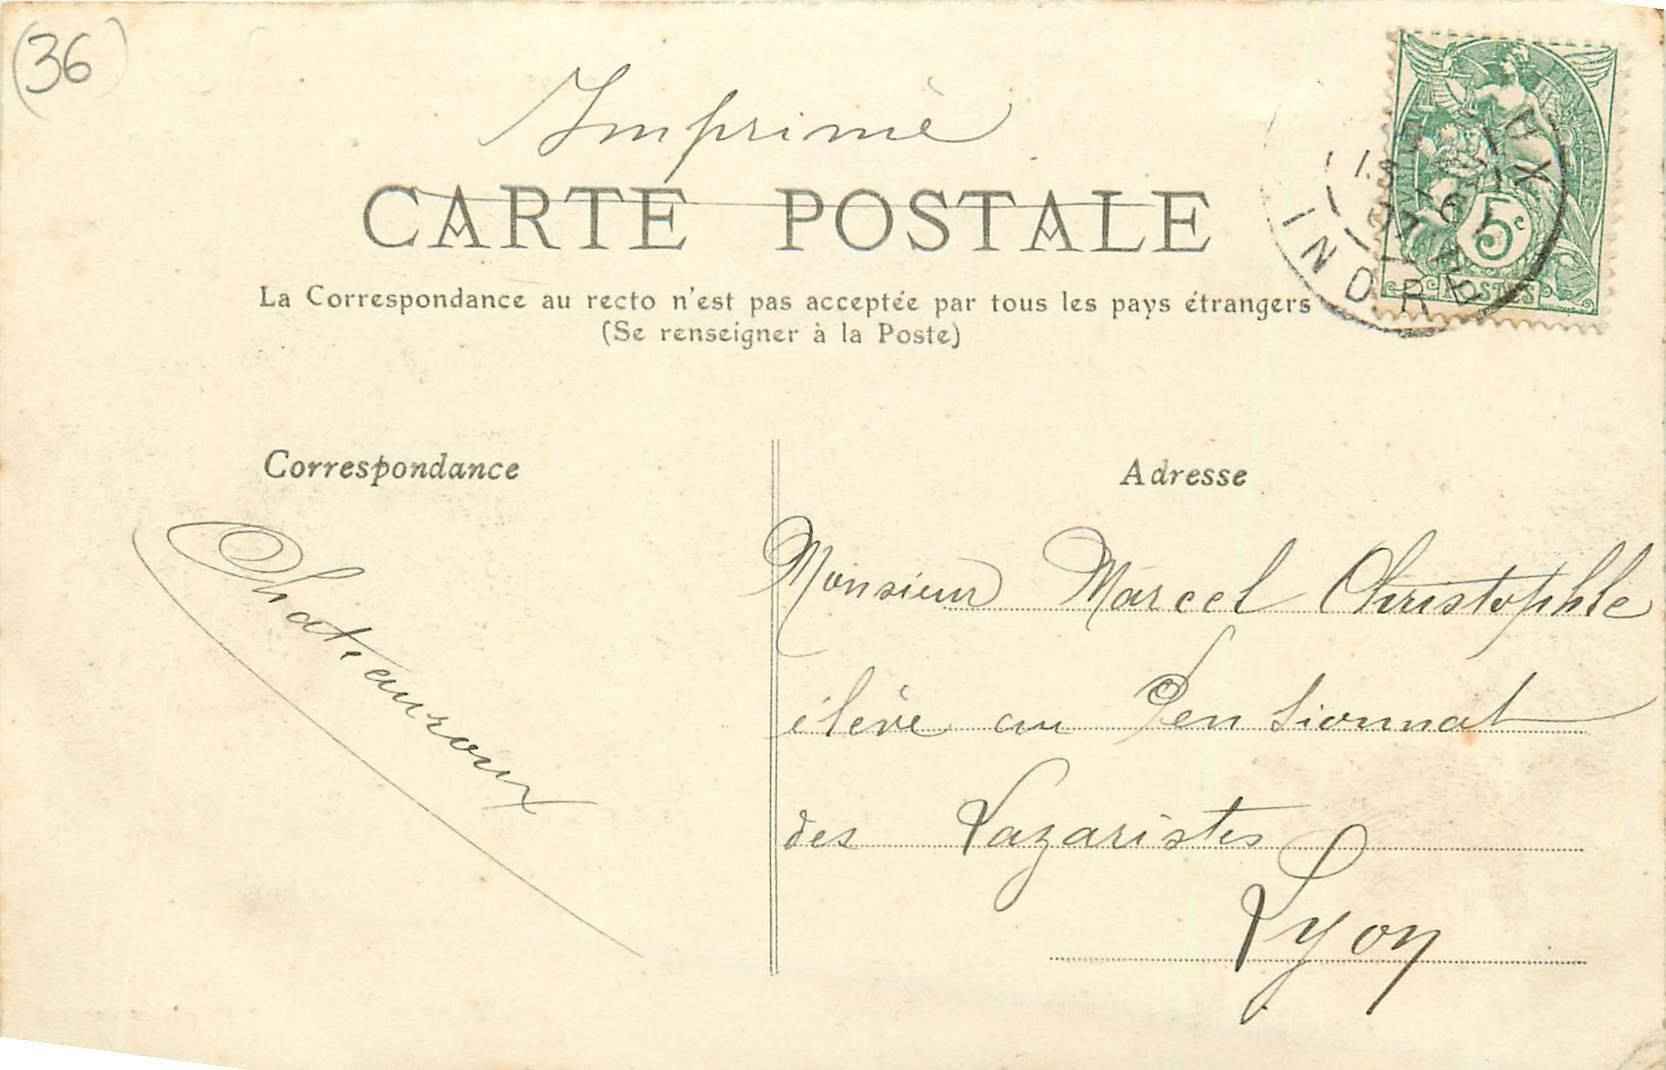 (36)
Imprimé
CARTE POSTALE
La Correspondance au recto n'est pas acceptée par tous les pays étrangers
(Se renseigner à la Poste)
5c
POSTES
INDRE
Correspondance
Chateauroux
Adresse
Monsieur Marcel Christophle
élève au Pensionnat
des Lazaristes
Lyon